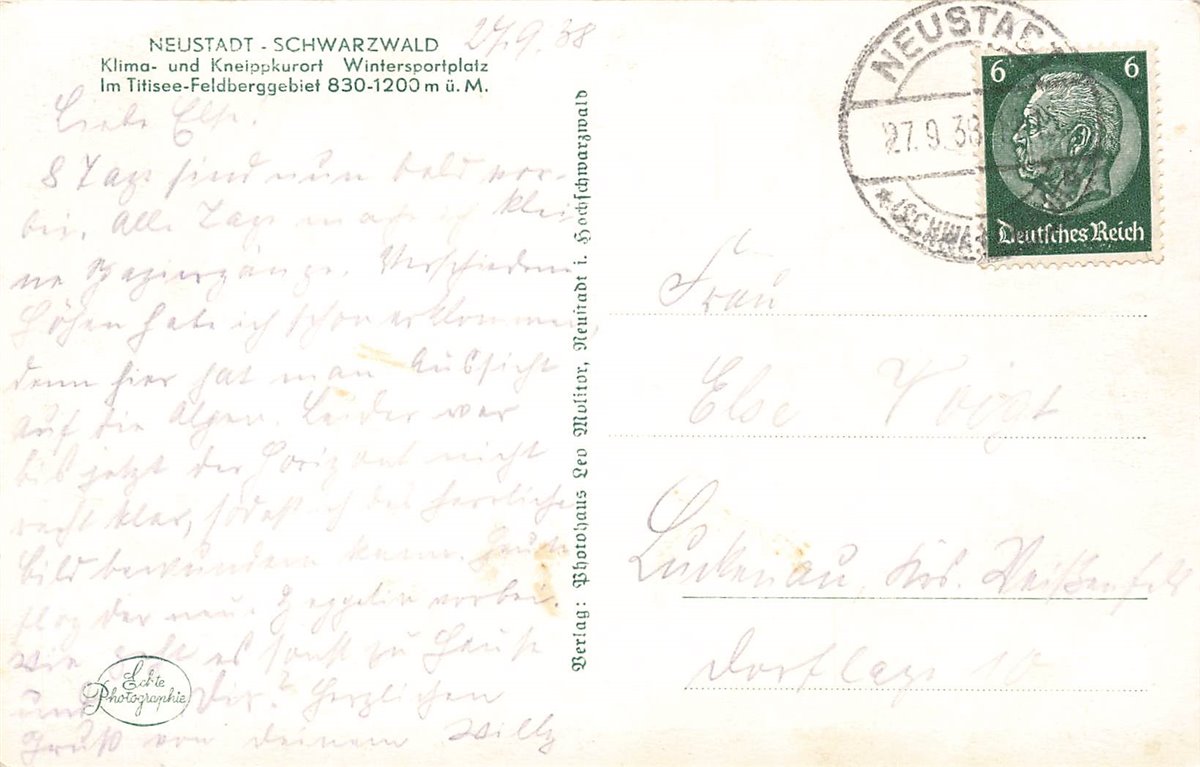 NEUSTADT - SCHWARZWALD
Klima- und Kneippkurort Wintersportplatz
Im Titisee-Feldberggebiet 830-1200 m ü. M.
27.9.38
Liebe Else.
8 Tage sind nun bald vor-
bei. Alle Tage mache ich klei
ne Spaziergänge. Verschiedene
Höhen habe ich schon erklommen,
denn hier hat man Aussicht
auf die Alpen. Leider war
bis jetzt der Horizont nicht
recht klar, sodaß ich das herrliche
Bild bewundern kann. Heute
flog der neue Zeppelin vorbei.
Wie geht es sonst zu Hause
und Dir? Herzlichen
Gruß von deinem Willy
Echte
Photographie
Verlag: Photohaus Leo Molitor, Neustadt i. Hochschwarzwald
NEUSTADT
27.9.38
(SCHWA
6 6
Deutsches Reich
Frau
Else Voigt
Luckenau, Krs. Weißenfels
Dorflage 10